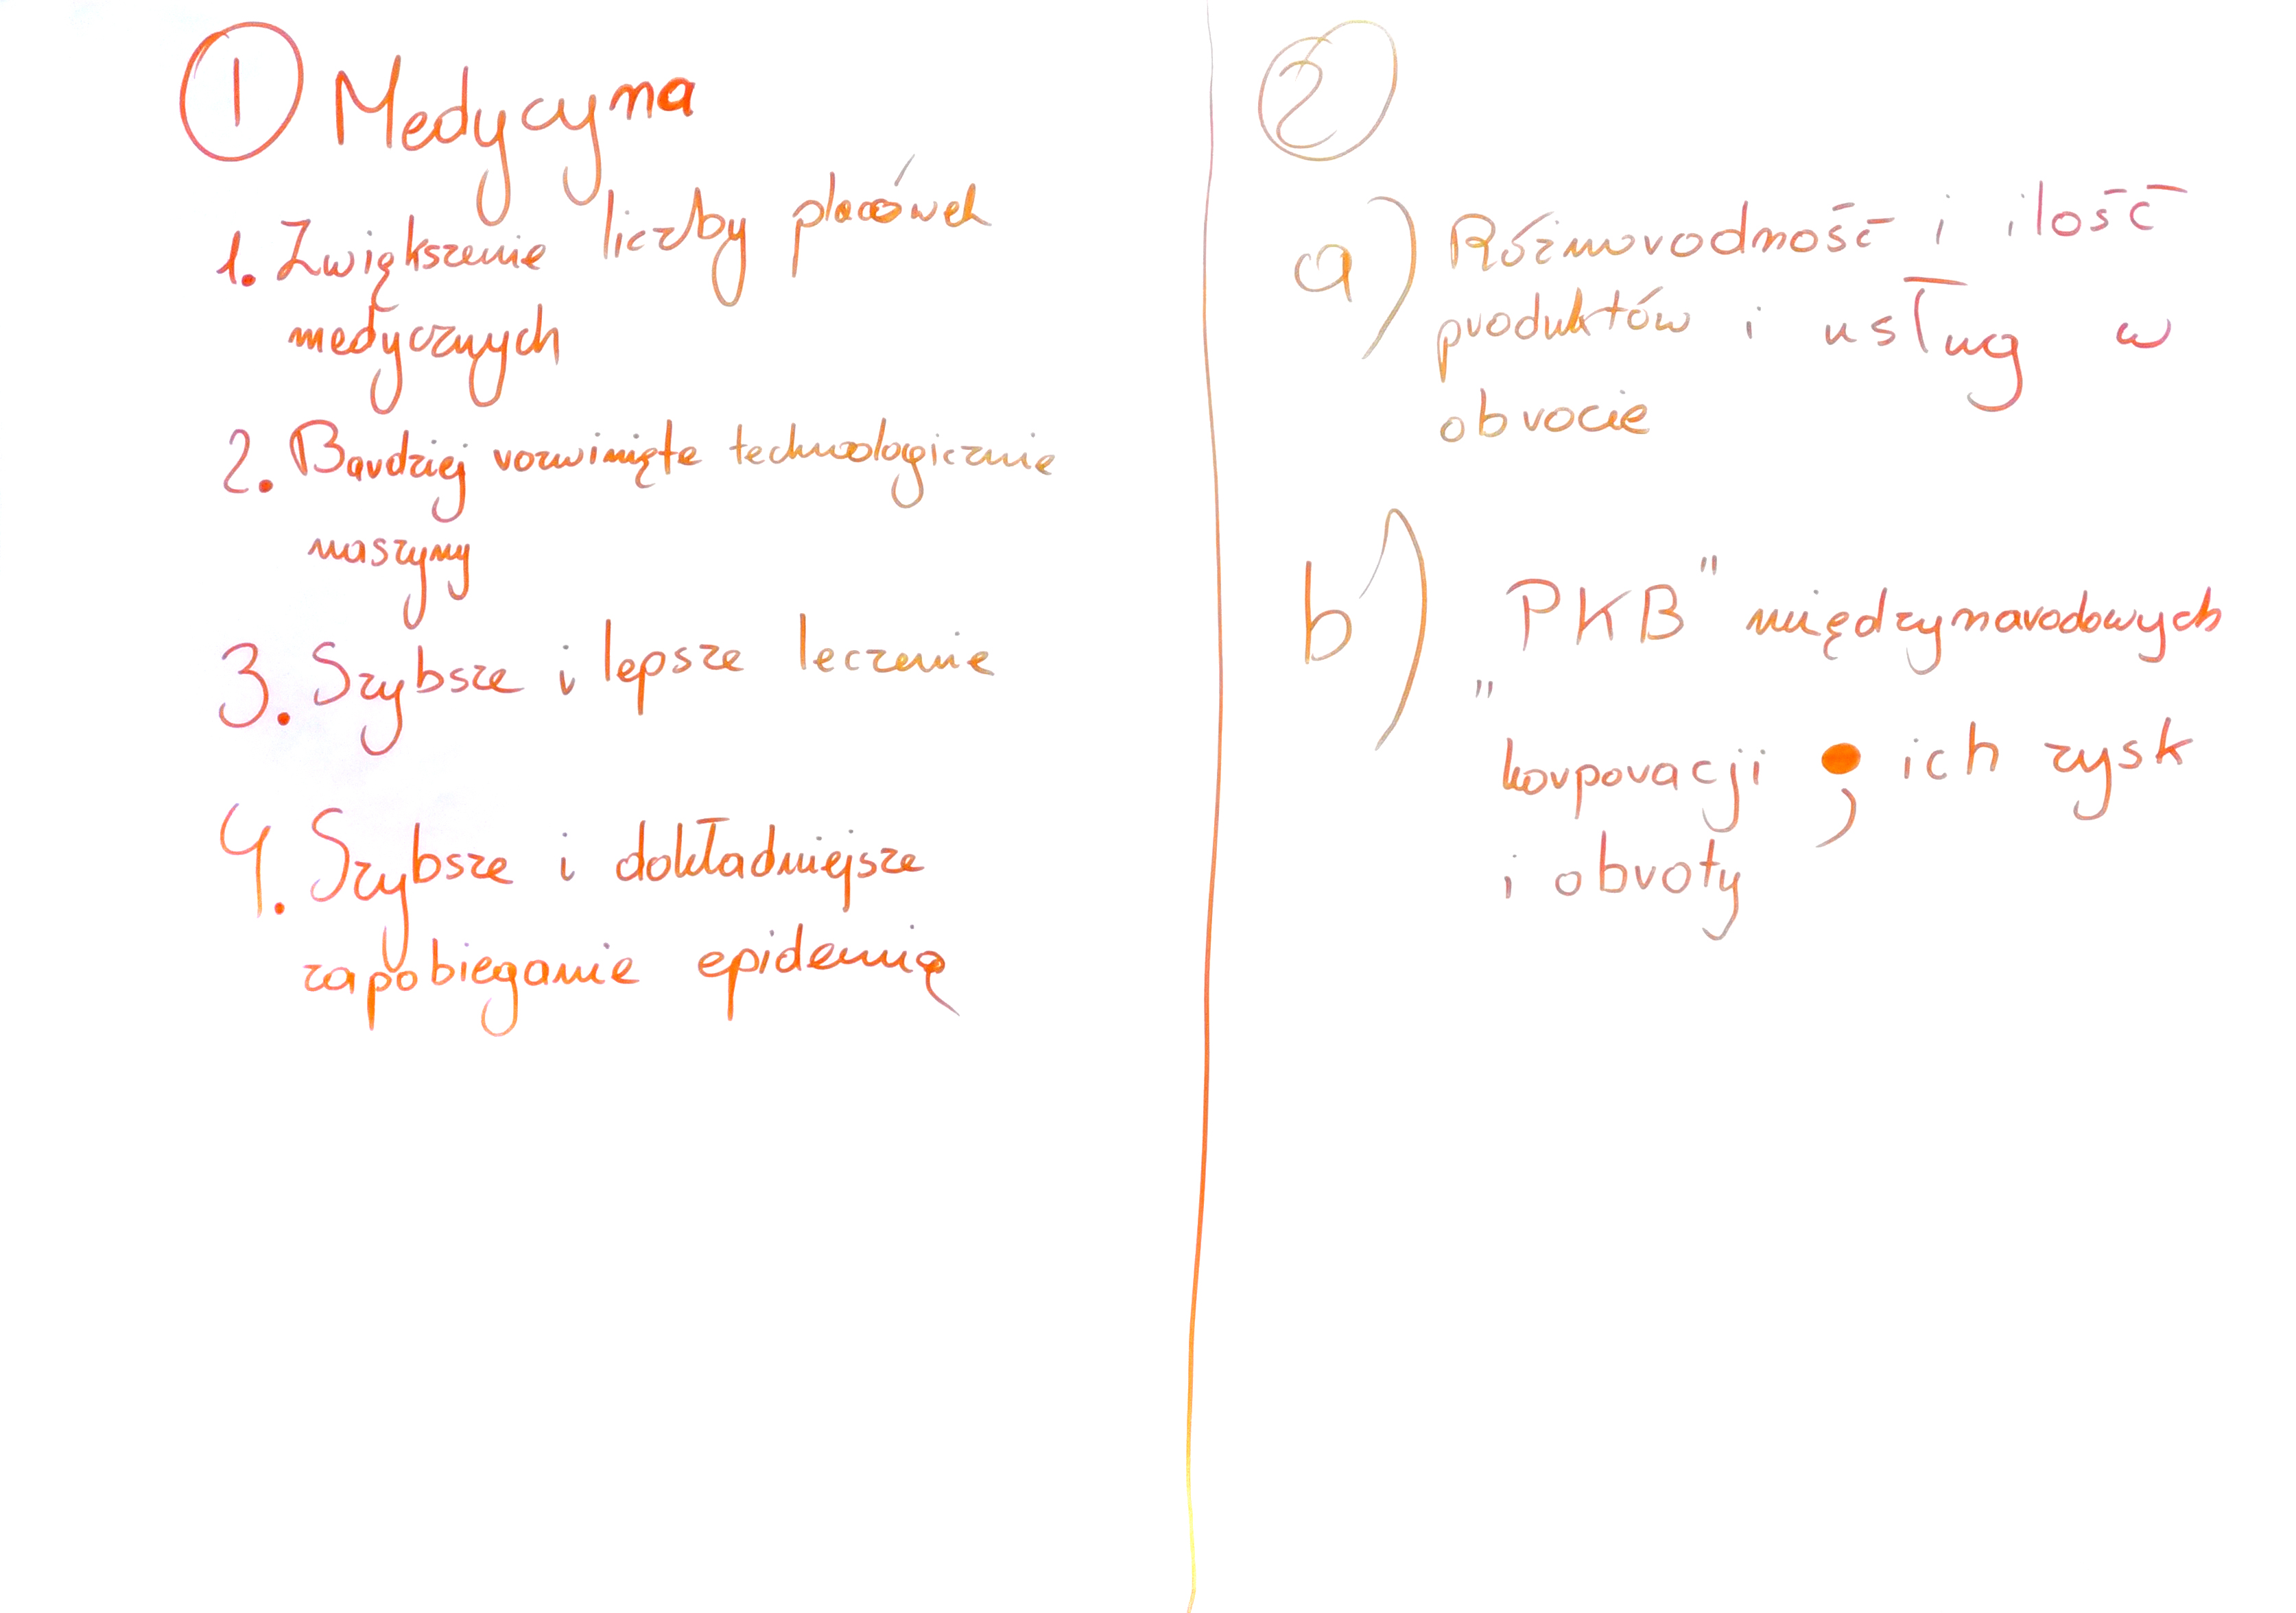 1 Medycyna
1. Zwiększenie liczby placówek
medycznych
2. Bardziej rozwinięte technologicznie
maszyny
3. Szybsze i lepsze leczenie
4. Szybsze i dokładniejsze
zapobieganie epidemię
2
a) Różnorodność i ilość
produktów i usług w
obrocie
b) „PKB" międzynarodowych
korporacji, ich zysk
i obroty